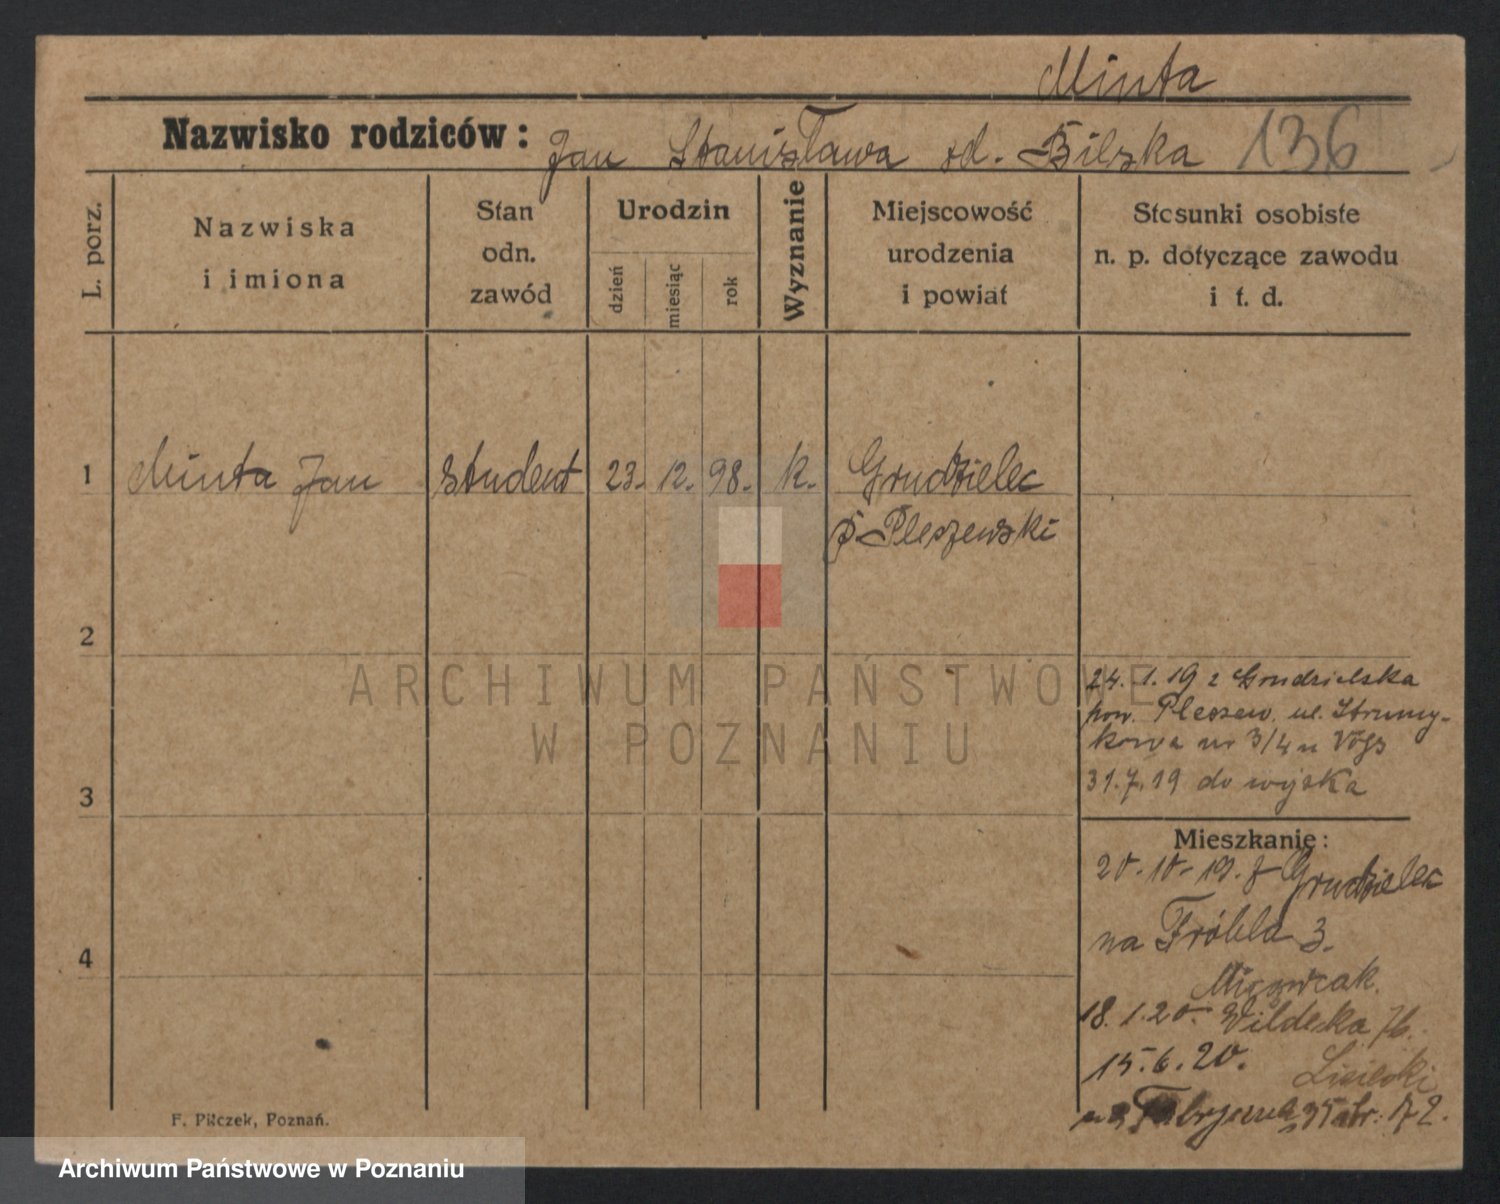 Minta
Nazwisko rodziców: Jan Stanisława rd. Bilska 136
L. porz.
Nazwiska
i imiona
Stan
odn.
zawód
Urodzin
dzień
miesiąc
rok
Wyznanie
Miejscowość
urodzenia
i powiat
Stosunki osobiste
n. p. dotyczące zawodu
i t. d.
1 Minta Jan student 23. 12. 98. k. Grudzielec
p. Pleszewski
2
24. 1. 19 z Grudzielska
pow. Pleszew. ul. Strumy-
kowa nr 3/4 u
3
31.7.19 do wojska
Mieszkanie:
20.10.19. z Grudzielec
na Fröbla 3.
4
18.1.20. Wildecka
15.6.20.
F. Pilczek, Poznań.
ARCHIWUM PAŃSTWOWE
W POZNANIU
Archiwum Państwowe w Poznaniu